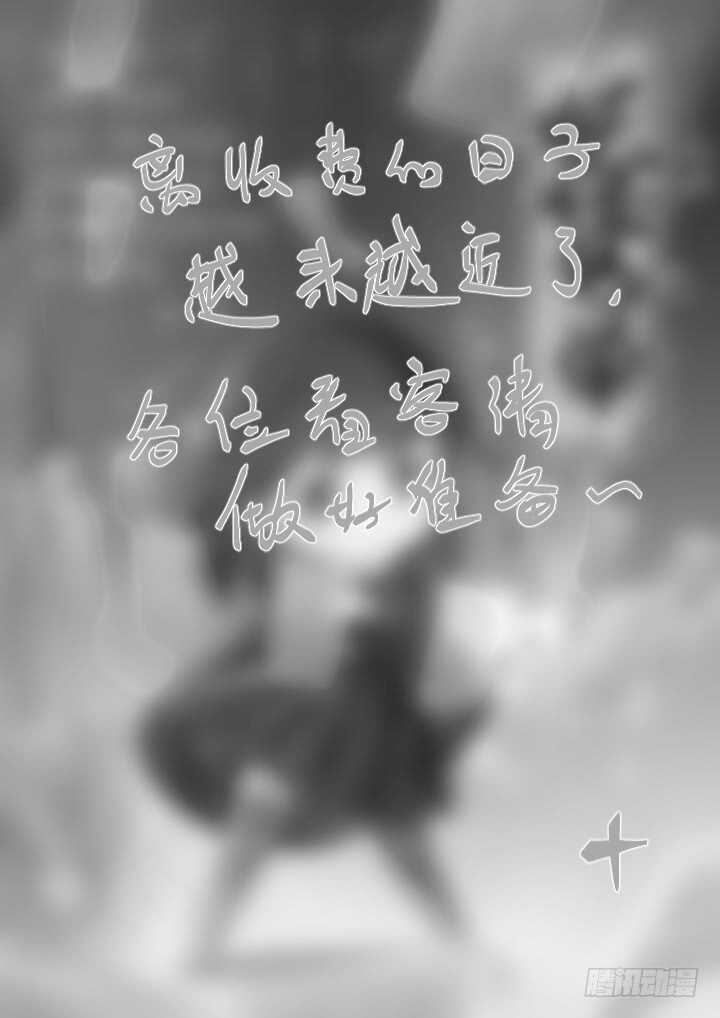 离收费的日子
越来越近了，
各位看客请
做好准备~
十
腾讯动漫